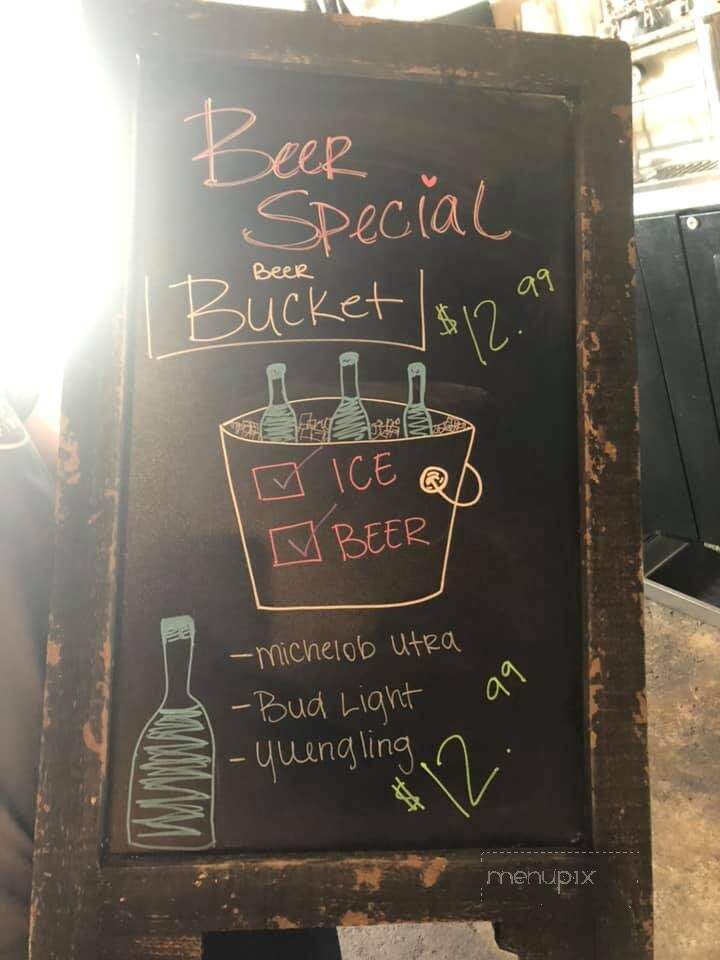 Beer
Special
Beer
Bucket
$12.99
ICE
BEER
-michelob Utra
-Bud Light
-yuengling
$12.99
menupix